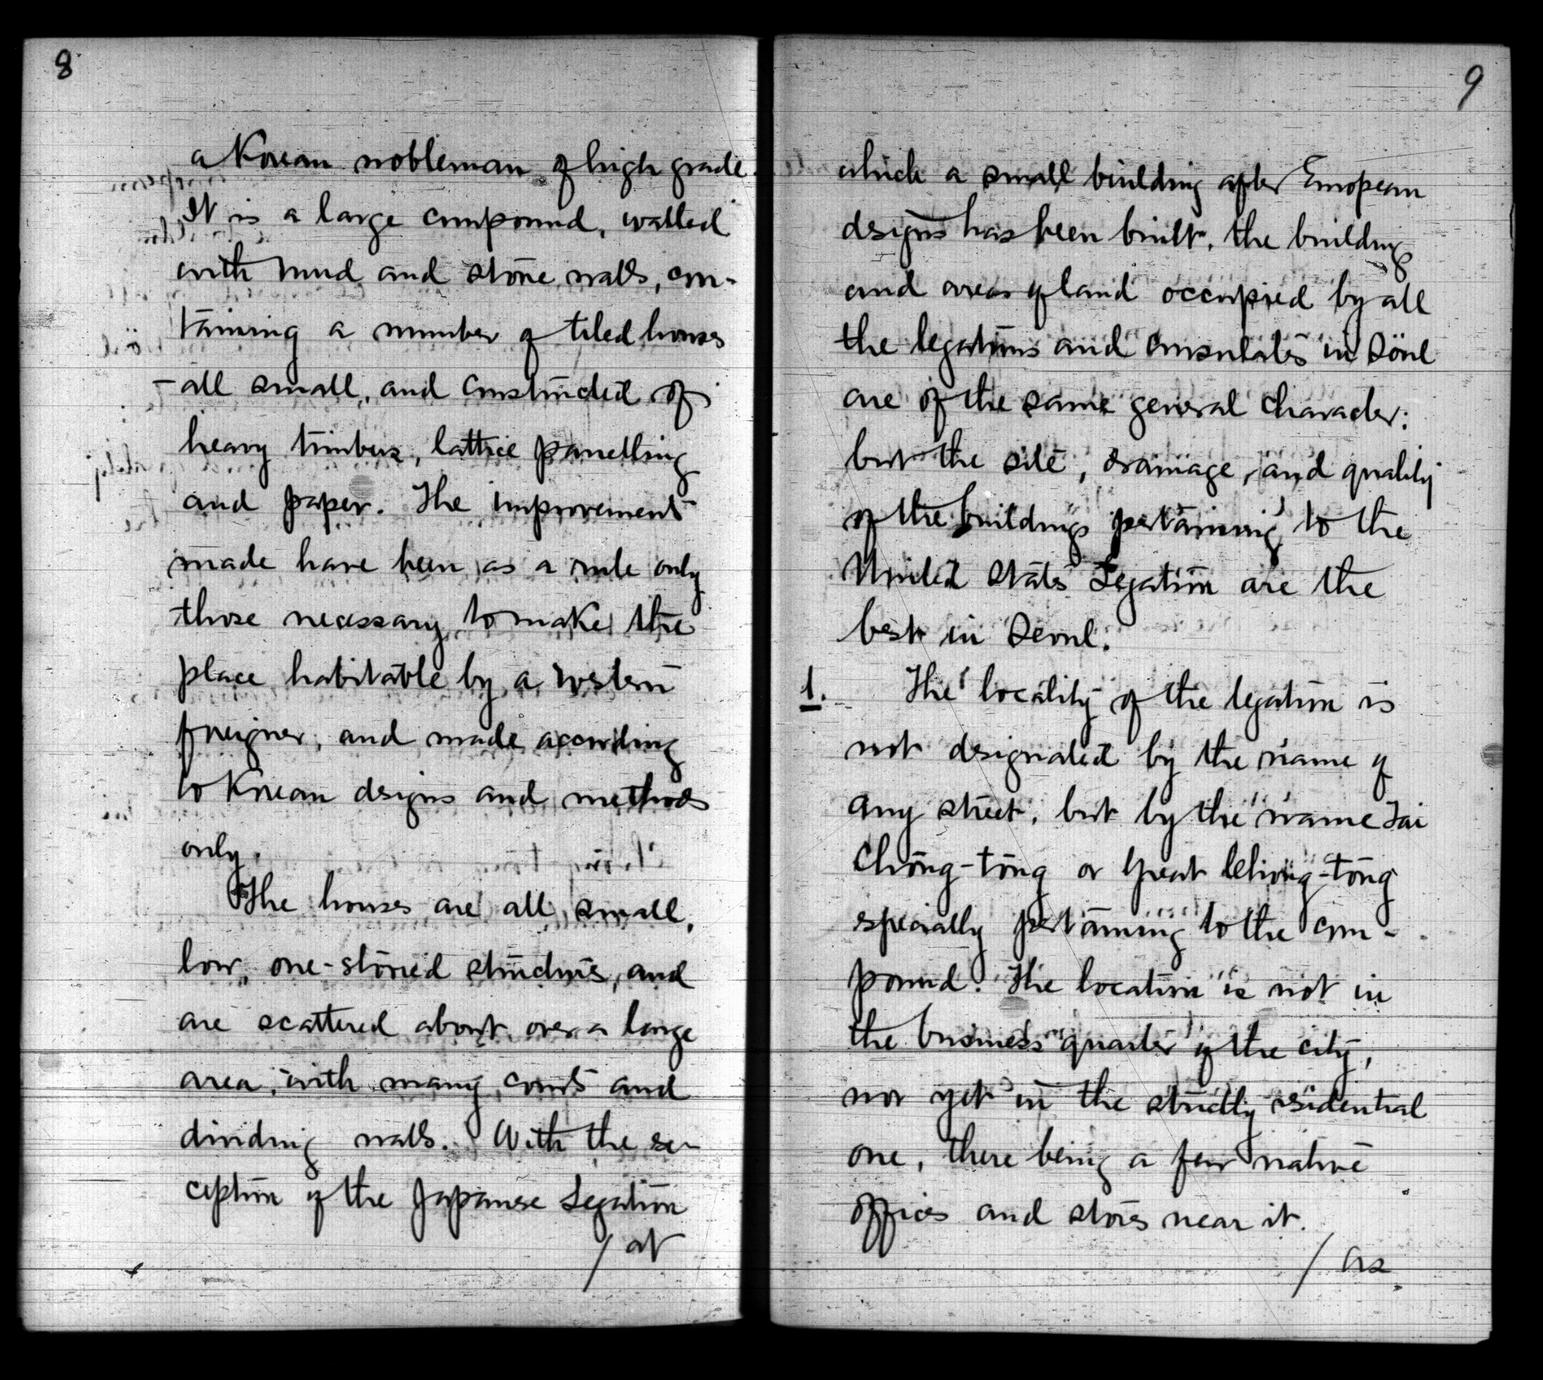 8
a Korean nobleman of high grade.
It is a large compound, walled
with mud and stone walls, con-
taining a number of tiled houses
- all small, and constructed of
heavy timbers, lattice panelling
and paper. The improvements
made have been as a rule only
those necessary to make the
place habitable by a western
foreigner, and made according
to Korean designs and methods
only.
The houses are all small,
low, one-storied structures, and
are scattered about over a large
area, with many courts and
dividing walls. With the ex-
ception of the Japanese Legation
/ at
9
which a small building after European
designs has been built, the buildings
and areas of land occupied by all
the legations and consulates in Söul
are of the same general character:
but the site, drainage, and quality
of the buildings pertaining to the
United States Legation are the
best in Seoul.
1. The locality of the legation is
not designated by the name of
any street, but by the name Tai
Chöng-tong or Great Chöng-tong
specially pertaining to the com-
pound. The location is not in
the business quarter of the city,
nor yet in the strictly residential
one, there being a few native
offices and stores near it.
/ As